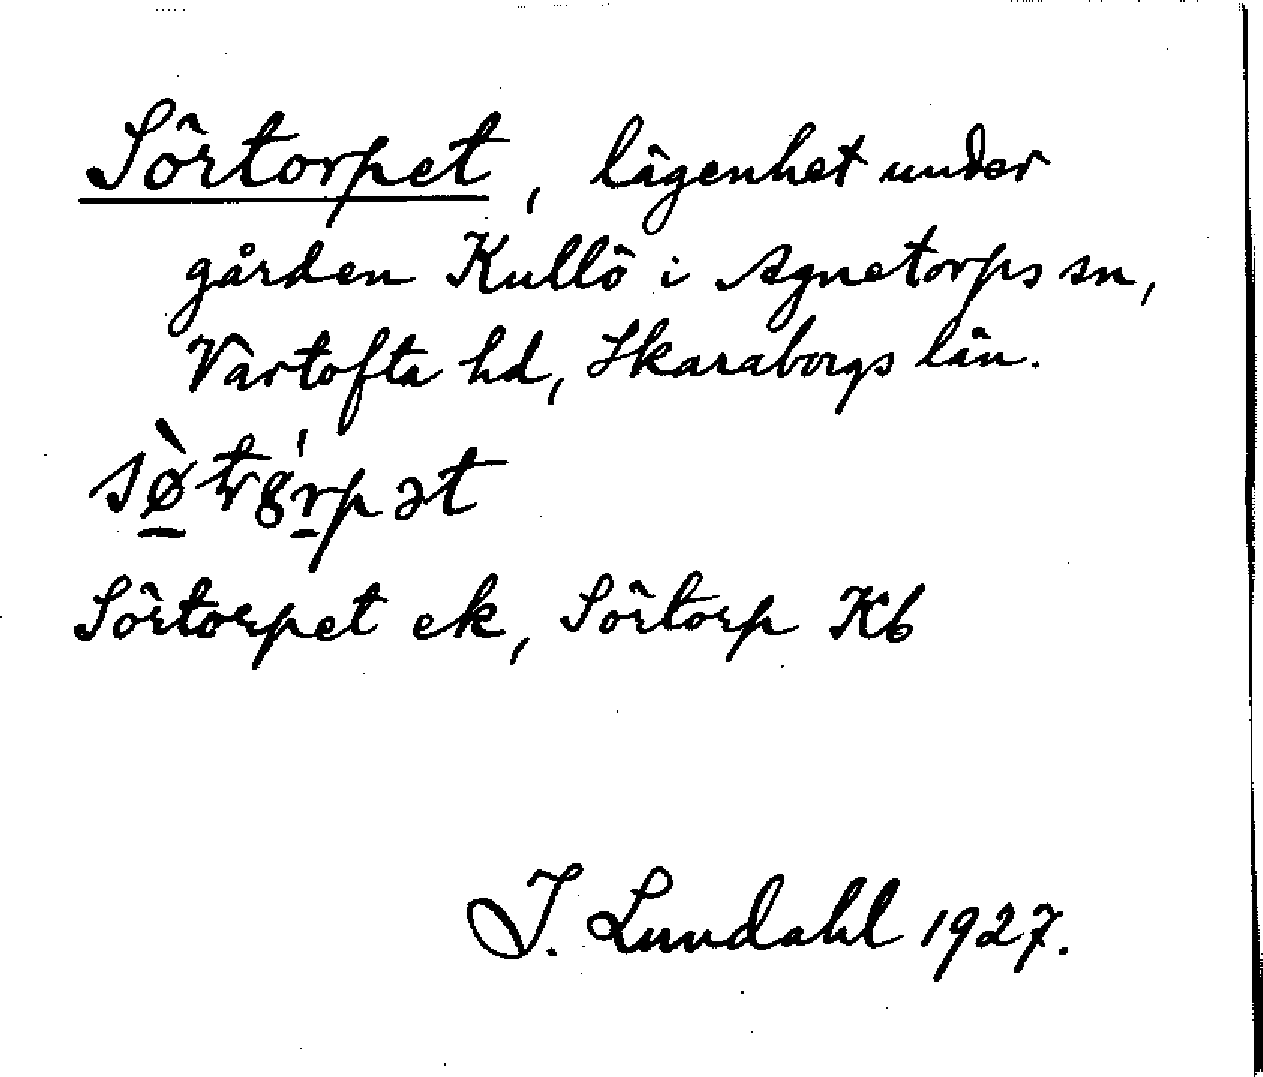 Sörtorpet, lägenhet under
gården Kullö i Agnetorps sn,
Vartofta hd, Skaraborgs län.
Sörtorpet ek, Sörtorp Kb
I. Lundahl 1927.